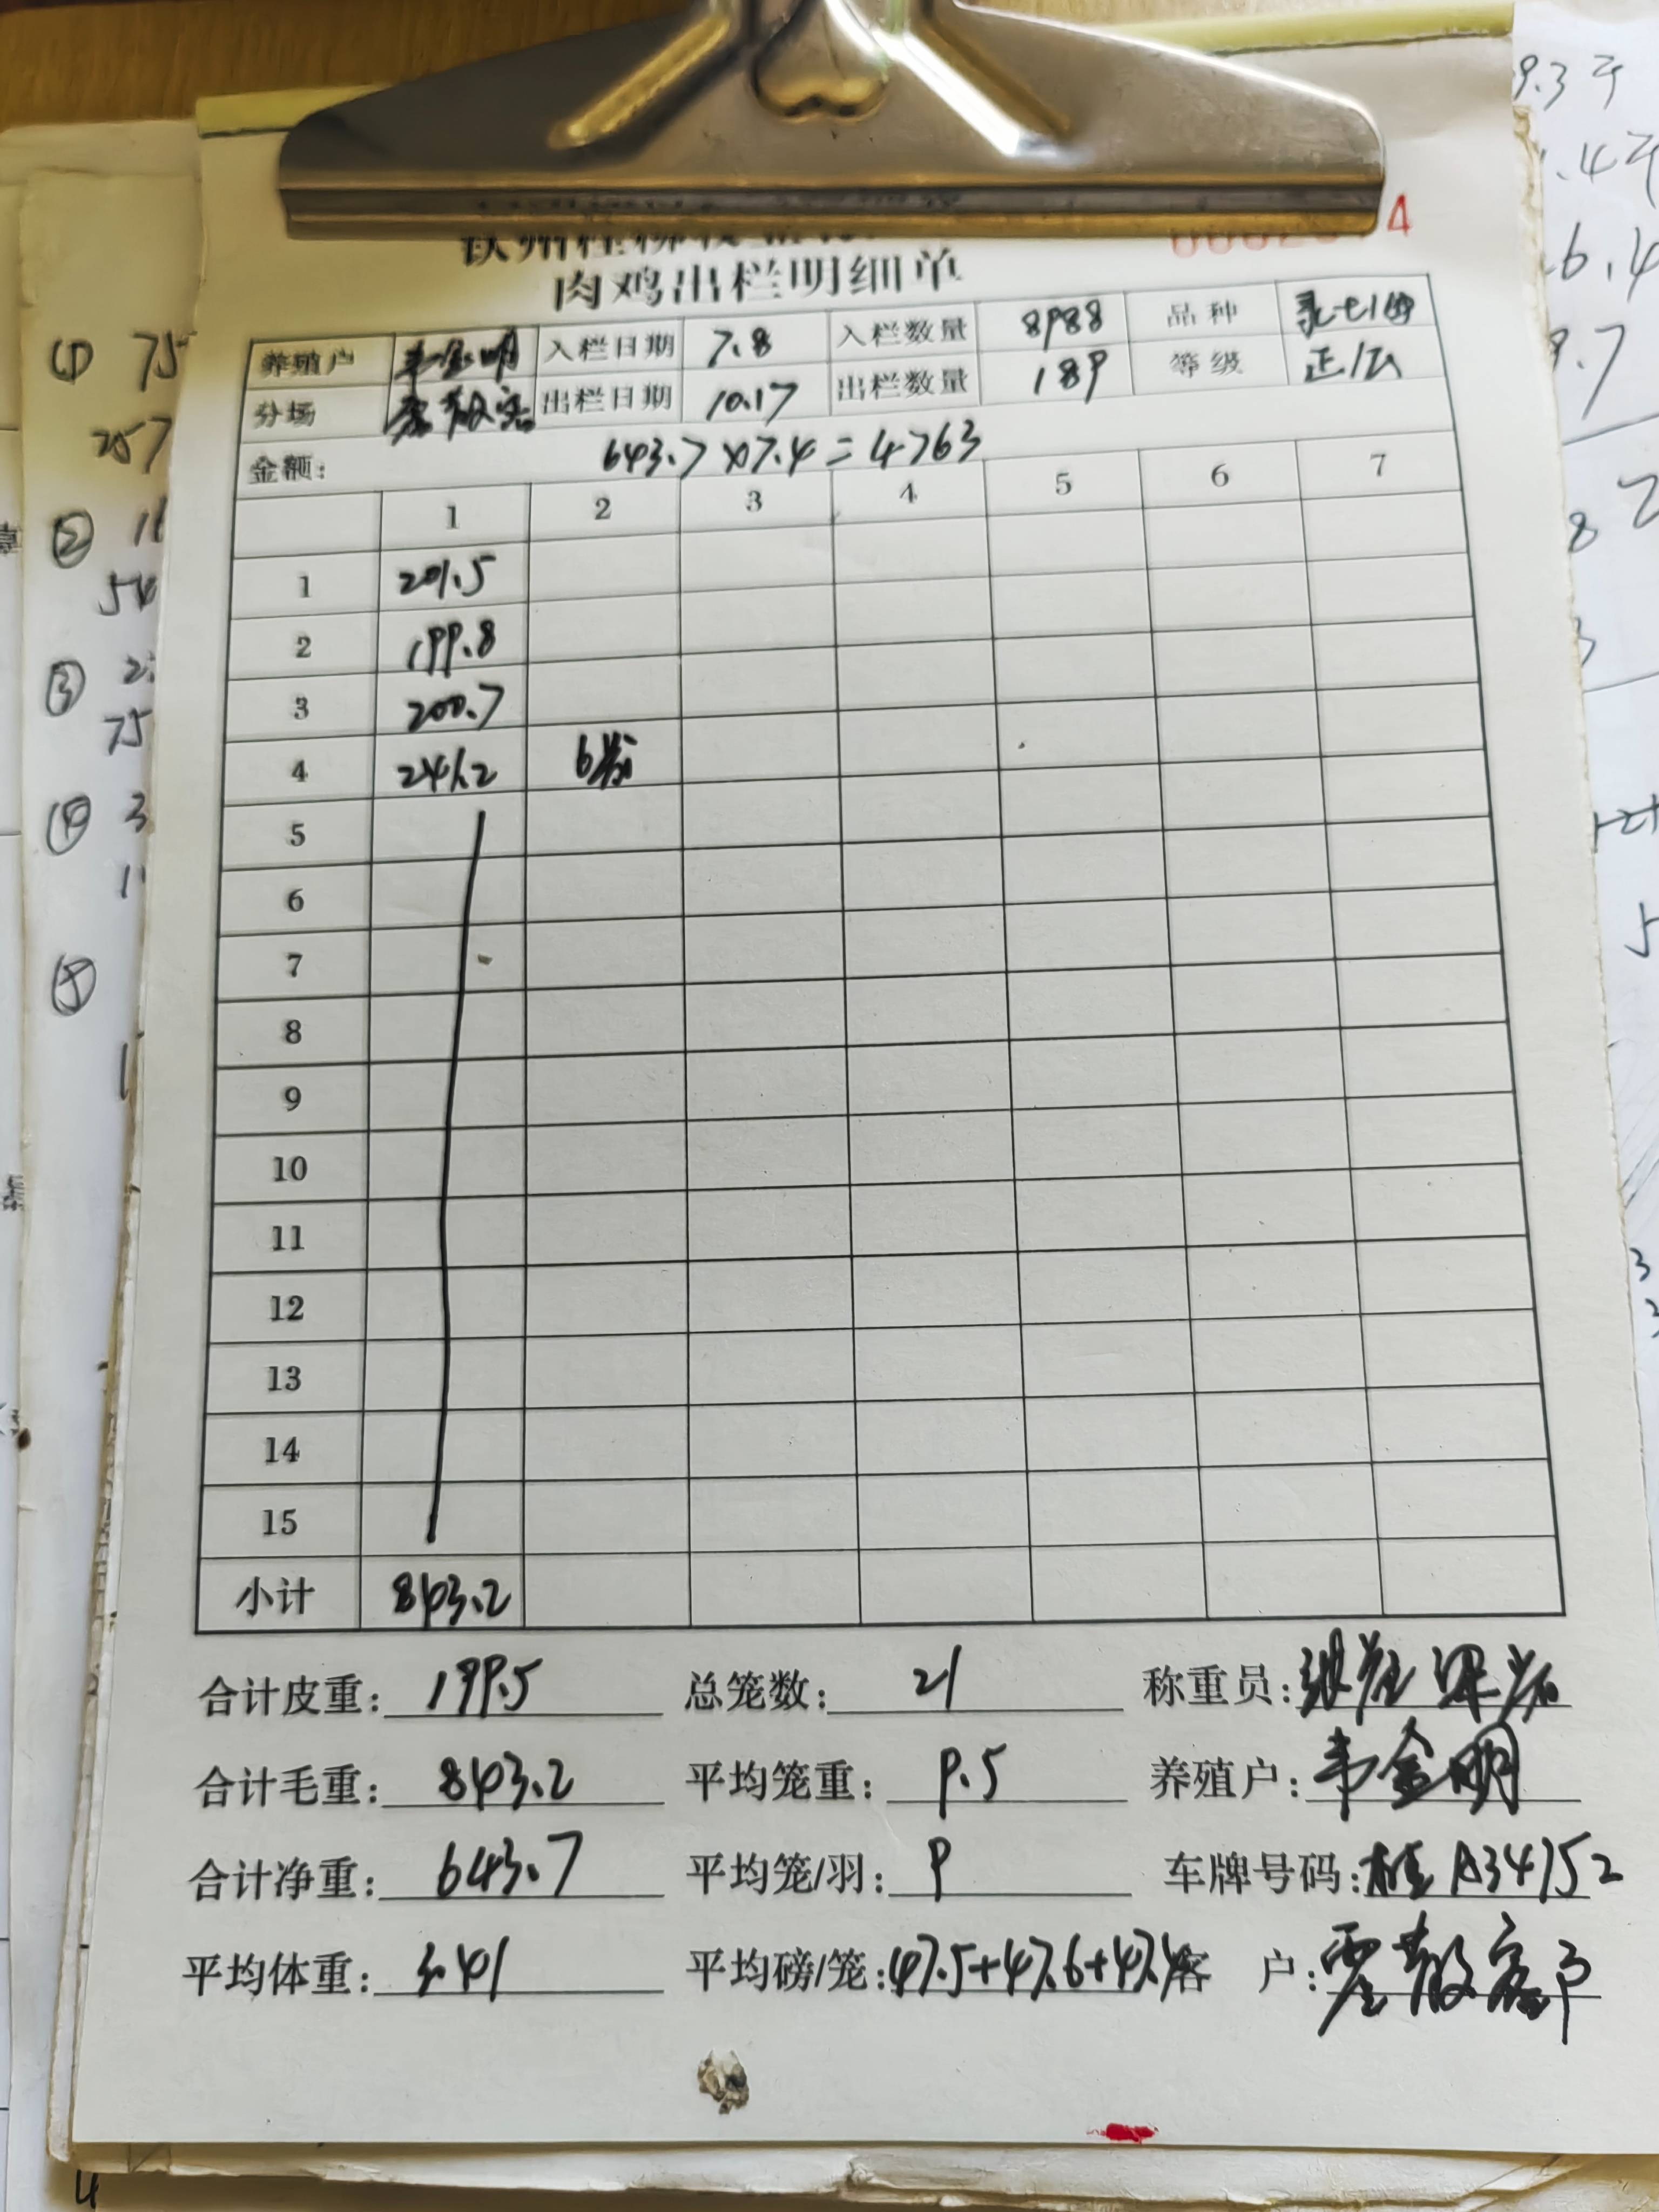 肉鸡出栏明细单
养殖户 韦金明 入栏日期 7.8 入栏数量 8988 品种
分场 零散客 出栏日期 10.17 出栏数量 189 等级 正/公
金额: 643.7×7.4=4763
1 2 3 4 5 6 7
1 201.5
2 199.8
3 200.7
4 241.2 6笼
5
6
7
8
9
10
11
12
13
14
15
小计 843.2
合计皮重: 199.5 总笼数: 21 称重员:
合计毛重: 843.2 平均笼重: 9.5 养殖户: 韦金明
合计净重: 643.7 平均笼/羽: 9 车牌号码: 桂A34152
平均体重: 3.41 平均磅/笼: 47.5+47.6+47.4 客户: 零散客户